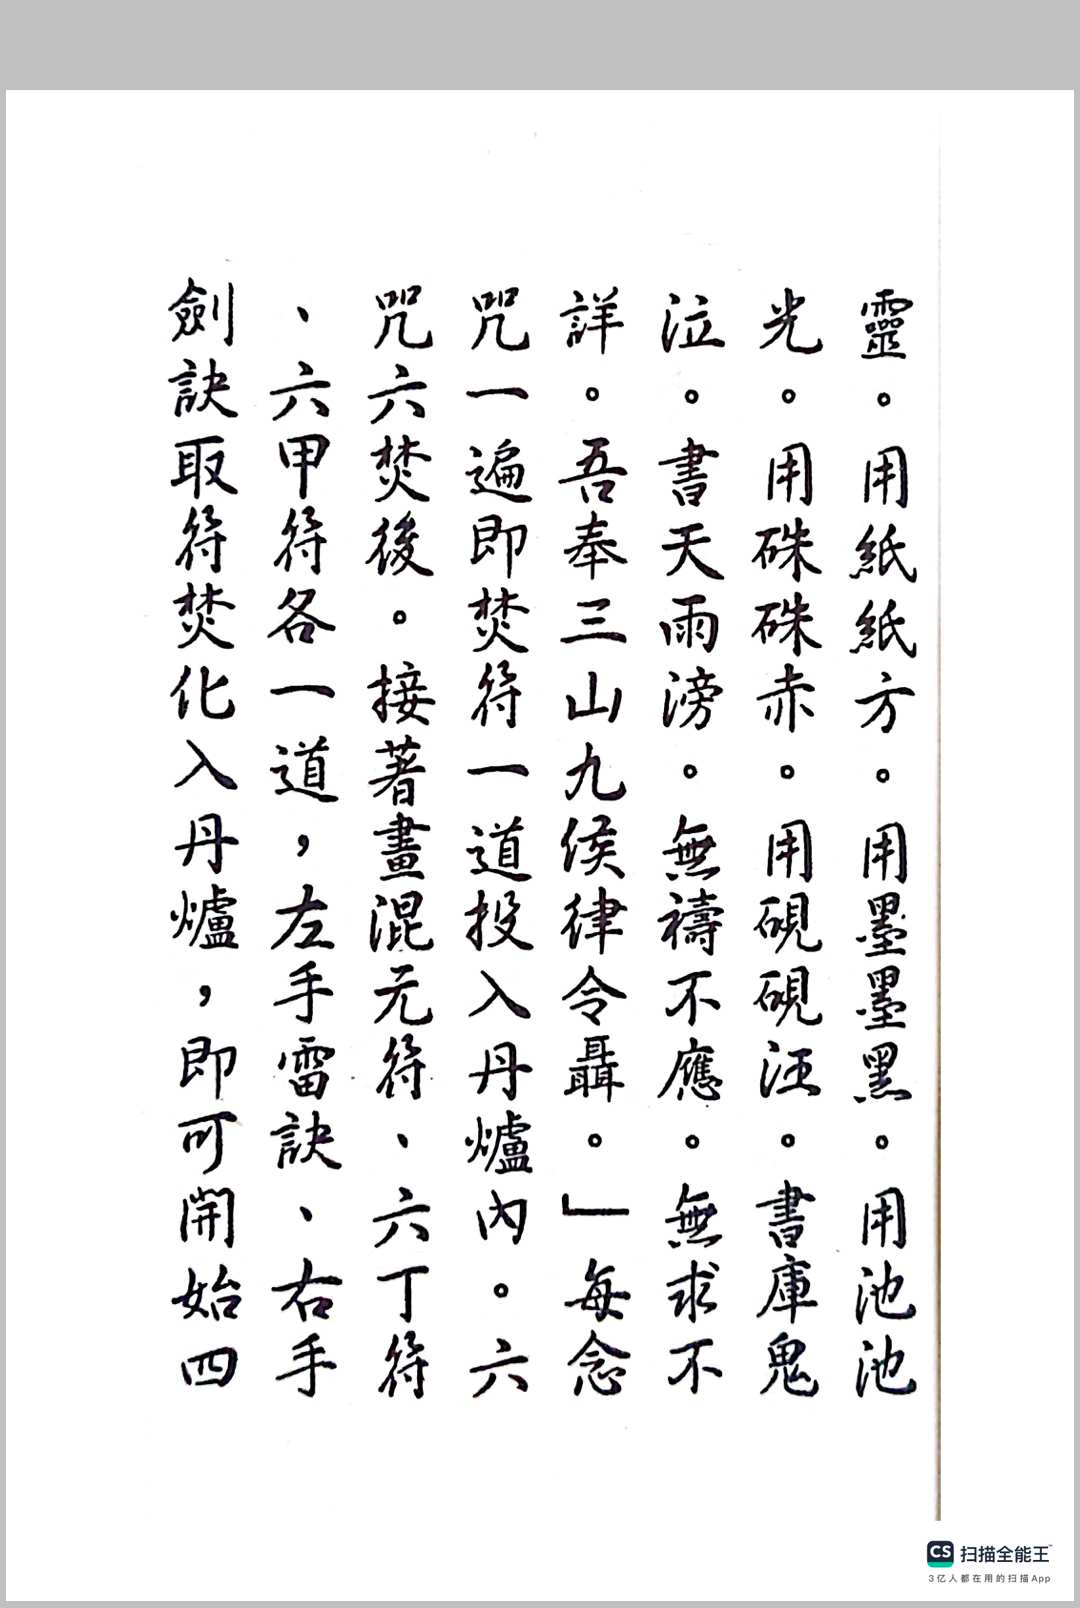 靈。用紙紙方。用墨墨黑。用池池
光。用硃硃赤。用硯硯汪。書庫鬼
泣。書天雨滂。無禱不應。無求不
詳。吾奉三山九侯律令聶。」每念
咒一遍即焚符一道投入丹爐內。六
咒六焚後。接著畫混元符、六丁符
、六甲符各一道，左手雷訣、右手
劍訣取符焚化入丹爐，即可開始四
CS 扫描全能王
3亿人都在用的扫描App